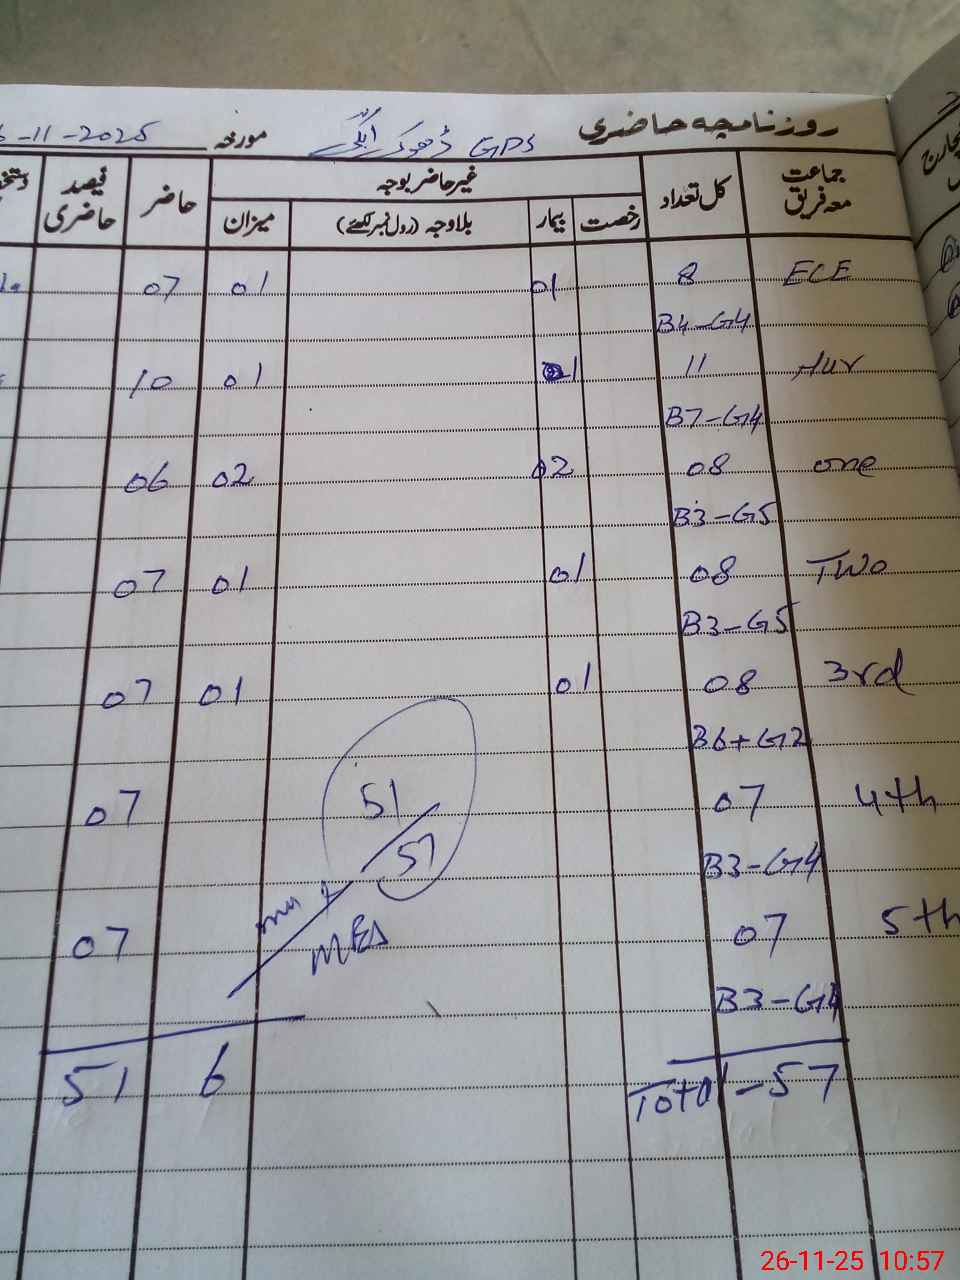 روزنامچہ حاضری
GPS ڈھوک مورخہ 6-11-2025
جماعت معہ فریق کل تعداد غیر حاضر بوجہ حاضر فیصد حاضری
رخصت بیمار بلاوجہ (رول نمبر لکھئے) میزان
ECE 8 01 01 07
B4-G4
Nur 11 01 01 10
B7-G4
one 08 02 02 06
B3-G5
Two 08 01 01 07
B3-G5
3rd 08 01 01 07
B6+G2
4th 07 07
B3-G4
5th 07 07
B3-G4
51/57
MEA
Total-57 6 51
26-11-25 10:57